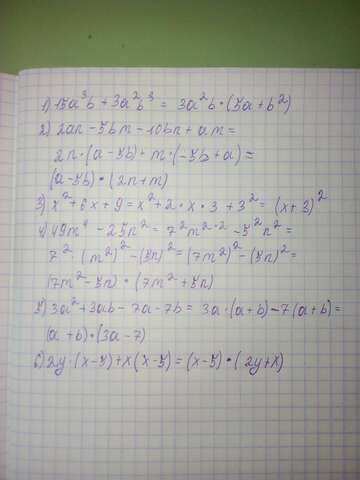 1) 15a³b + 3a²b³ = 3a²b·(5a+b²)
2) 2an - 5bm - 10bn + am =
2n·(a-5b)+m·(-5b+a)=
(a-5b)·(2n+m)
3) x²+6x+9 = x²+2·x·3+3² = (x+3)²
4) 49m⁴ - 25n² = 7²m²·² - 5²n² =
7²·(m²)² - (5n)² = (7m²)² - (5n)² =
(7m²-5n)·(7m²+5n)
5) 3a²+3ab-7a-7b = 3a·(a+b)-7(a+b)=
(a+b)·(3a-7)
6) 2y·(x-5)+x(x-5)=(x-5)·(2y+x)